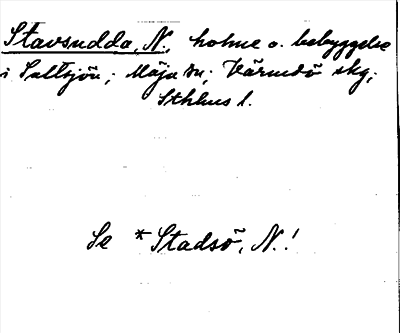 Stavsudda, N., holme o. bebyggelse
i Saltsjön; Möja sn; Värmdö skg;
Sthlms l.
Se *Stadsö, N.!